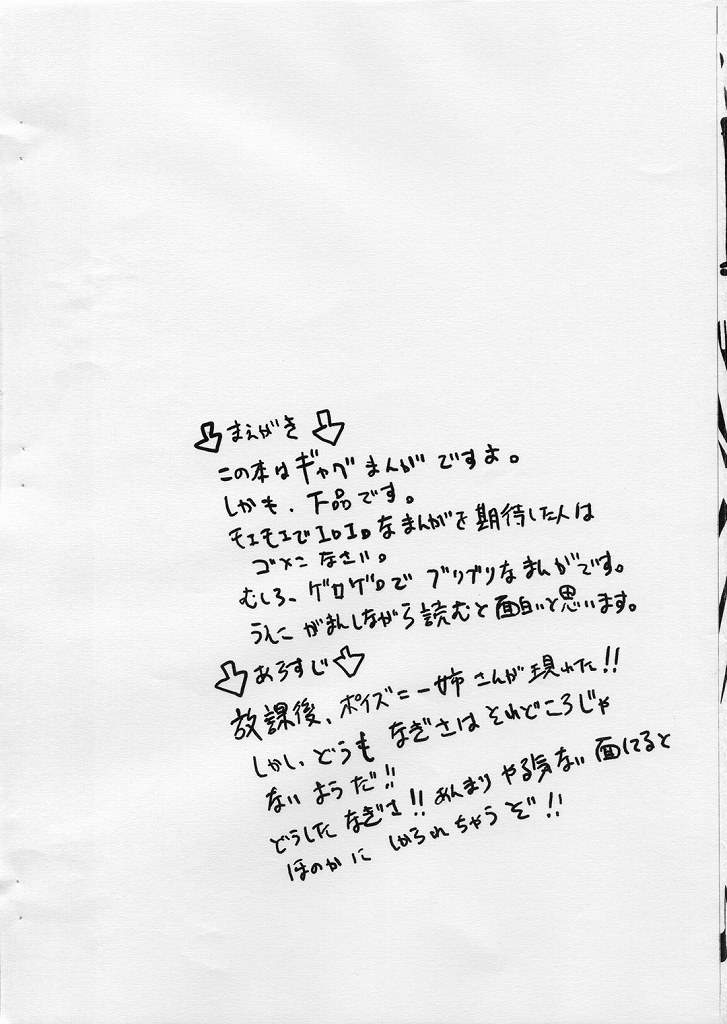 ⇩まえがき⇩
この本はギャグまんがですよ。
しかも、下品です。
モエモエでエロエロなまんがを期待した人は
ゴメンなさい。
むしろ、ゲロゲロでブリブリなまんがです。
うんこがまんしながら読むと面白いと思います。
⇩あらすじ⇩
放課後、ポイズニー姉さんが現れた!!
しかし、どうもなぎさはそれどころじゃ
ないようだ!!
どうしたなぎさ!!あんまりやる気ない面してると
ほのかにしかられちゃうぞ!!